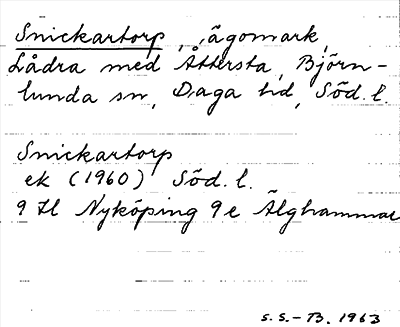 Snickartorp, ägomark,
Lådra med Åttersta, Björn-
lunda sn, Daga hd, Söd. l.
Snickartorp
ek (1960) Söd. l.
9 H Nyköping 9 e Älghammar
S.S.-B. 1963